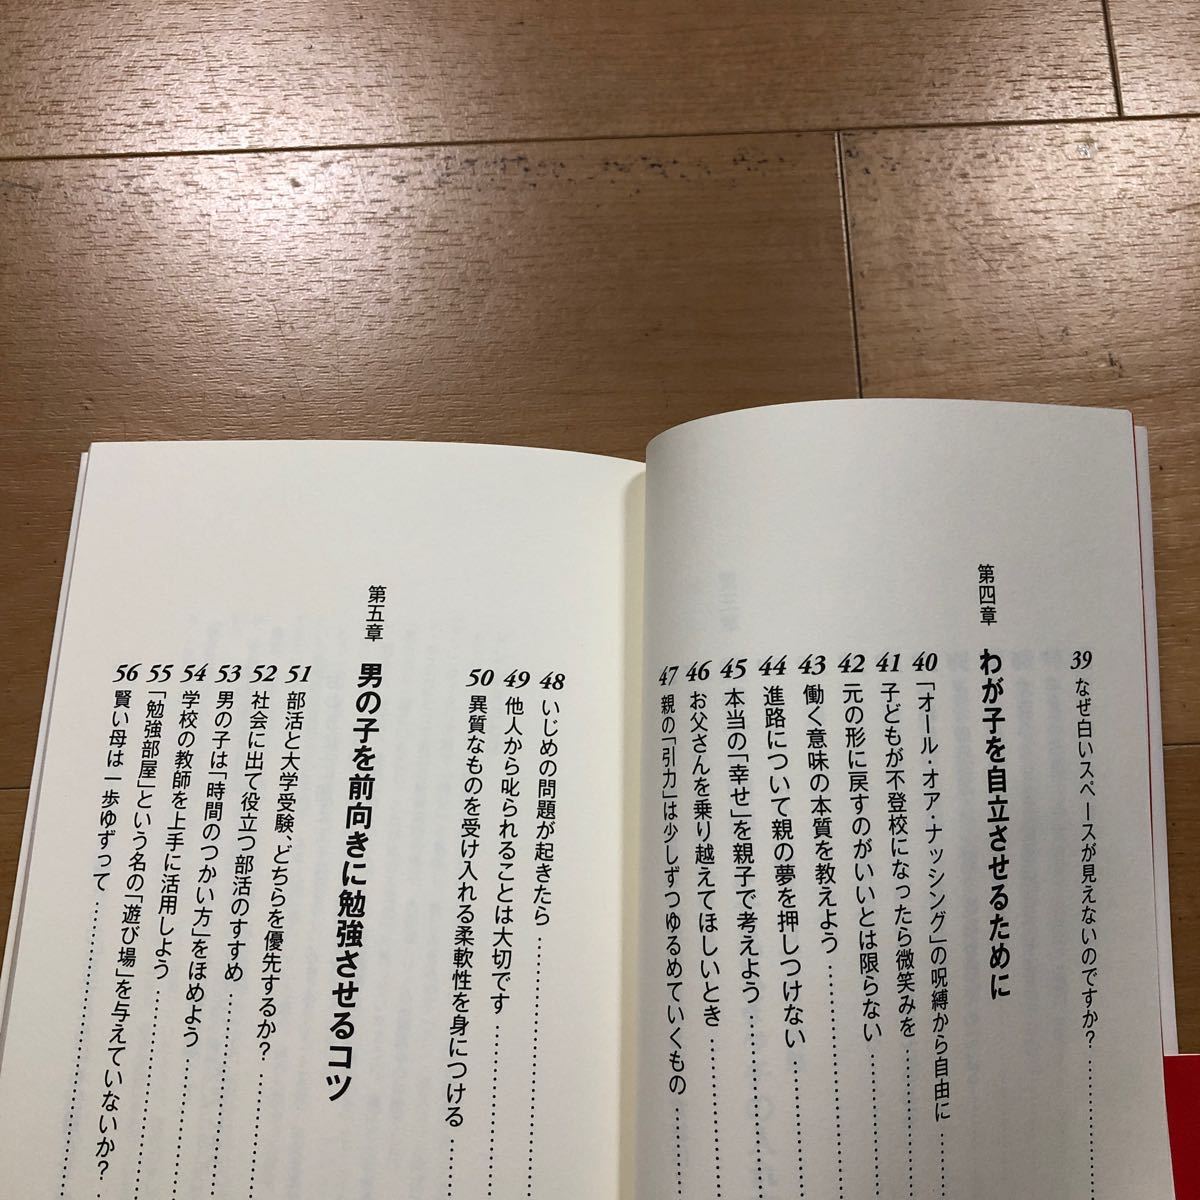 39 なぜ白いスペースが見えないのですか?
第四章 わが子を自立させるために
40 「オール・オア・ナッシング」の呪縛から自由に
41 子どもが不登校になったら微笑みを
42 元の形に戻すのがいいとは限らない
43 働く意味の本質を教えよう
44 進路について親の夢を押しつけない
45 本当の「幸せ」を親子で考えよう
46 お父さんを乗り越えてほしいとき
47 親の「引力」は少しずつゆるめていくもの
48 いじめの問題が起きたら
49 他人から叱られることは大切です
50 異質なものを受け入れる柔軟性を身につける
第五章 男の子を前向きに勉強させるコツ
51 部活と大学受験、どちらを優先するか?
52 社会に出て役立つ部活のすすめ
53 男の子は「時間のつかい方」をほめよう
54 学校の教師を上手に活用しよう
55 「勉強部屋」という名の「遊び場」を与えていないか?
56 賢い母は一歩ゆずって